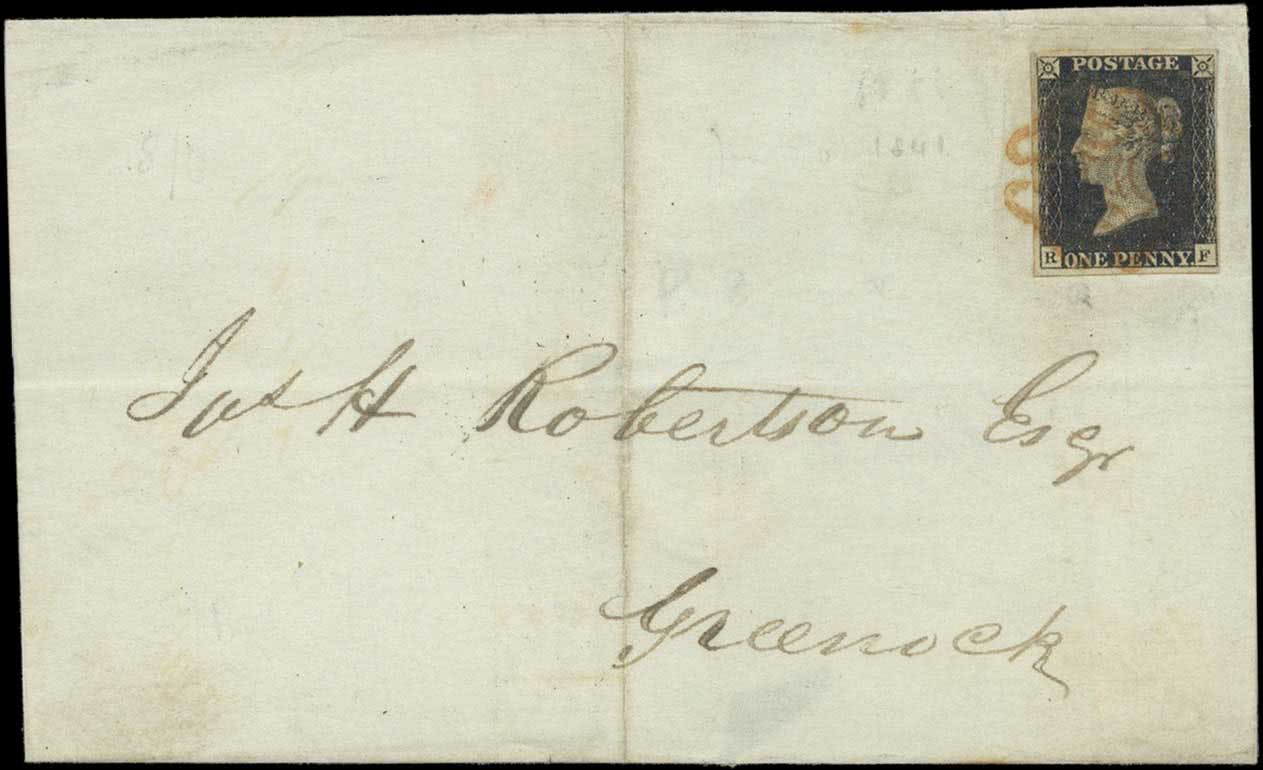 POSTAGE
R ONE PENNY. F
1841
Jas H Robertson Esqr
Greenock